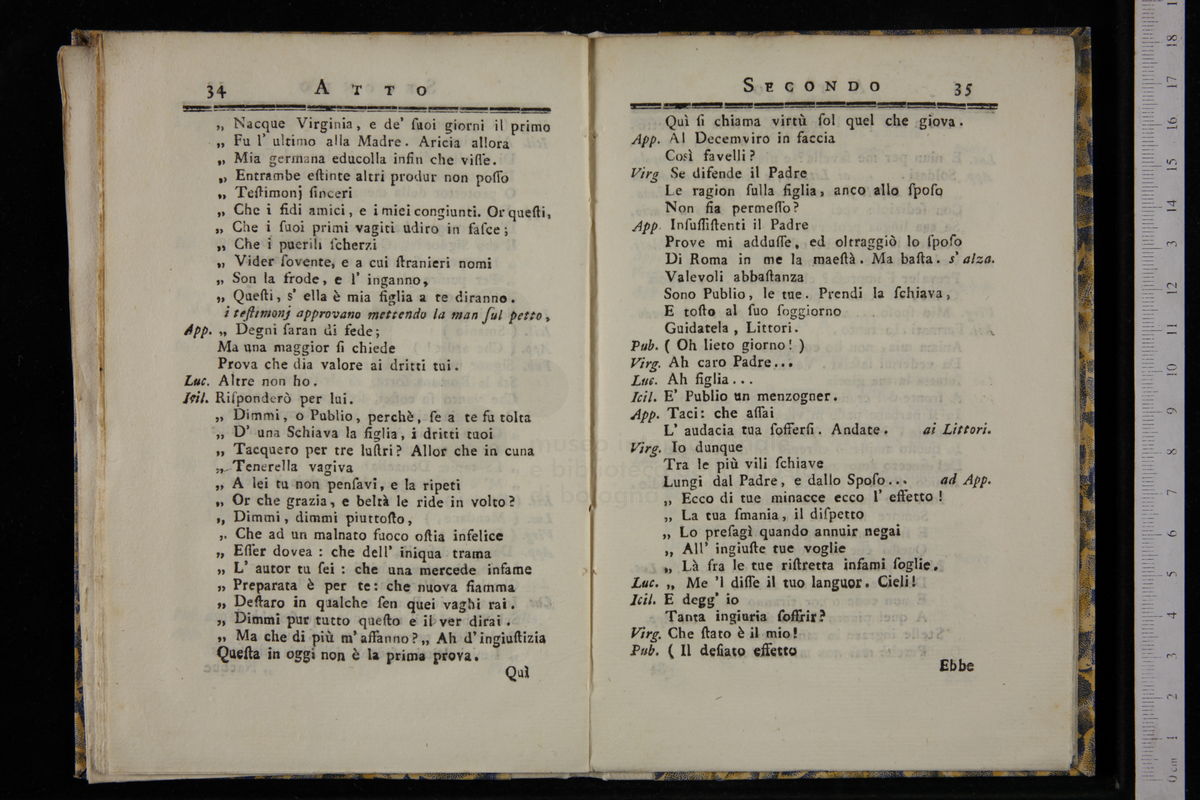 34 ATTO
„ Nacque Virginia, e de' ſuoi giorni il primo
„ Fu l' ultimo alla Madre. Aricia allora
„ Mia germana educolla infin che viſſe.
„ Entrambe eſtinte altri produr non poſſo
„ Teſtimonj ſinceri
„ Che i fidi amici, e i miei congiunti. Or queſti,
„ Che i ſuoi primi vagiti udiro in faſce;
„ Che i puerili ſcherzi
„ Vider ſovente, e a cui ſtranieri nomi
„ Son la frode, e l' inganno,
„ Queſti, s' ella è mia figlia a te diranno.
i teſtimonj approvano mettendo la man ſul petto,
App. „ Degni ſaran di fede;
Ma una maggior ſi chiede
Prova che dia valore ai dritti tui.
Luc. Altre non ho.
Icil. Riſponderò per lui.
„ Dimmi, o Publio, perchè, ſe a te fu tolta
„ D' una Schiava la figlia, i dritti tuoi
„ Tacquero per tre luſtri? Allor che in cuna
„ Tenerella vagiva
„ A lei tu non penſavi, e la ripeti
„ Or che grazia, e beltà le ride in volto?
„ Dimmi, dimmi piuttoſto,
„ Che ad un malnato fuoco oſtia infelice
„ Eſſer dovea : che dell' iniqua trama
„ L' autor tu ſei : che una mercede infame
„ Preparata è per te: che nuova fiamma
„ Deſtaro in qualche ſen quei vaghi rai.
„ Dimmi pur tutto queſto e il ver dirai.
„ Ma che di più m' affanno? „ Ah d' ingiuſtizia
Queſta in oggi non è la prima prova.
Quì
SECONDO 35
Quì ſi chiama virtù ſol quel che giova.
App. Al Decemviro in faccia
Così favelli?
Virg Se difende il Padre
Le ragion ſulla figlia, anco allo ſpoſo
Non fia permeſſo?
App. Inſuſſiſtenti il Padre
Prove mi adduſſe, ed oltraggiò lo ſpoſo
Di Roma in me la maeſtà. Ma baſta. s' alza.
Valevoli abbaſtanza
Sono Publio, le tue. Prendi la ſchiava,
E toſto al ſuo ſoggiorno
Guidatela, Littori.
Pub. ( Oh lieto giorno! )
Virg. Ah caro Padre...
Luc. Ah figlia...
Icil. E' Publio un menzogner.
App. Taci: che aſſai
L' audacia tua ſofferſi. Andate. ai Littori.
Virg. Io dunque
Tra le più vili ſchiave
Lungi dal Padre, e dallo Spoſo... ad App.
„ Ecco di tue minacce ecco l' effetto !
„ La tua ſmania, il diſpetto
„ Lo preſagì quando annuir negai
„ All' ingiuſte tue voglie
„ Là fra le tue riſtretta infami ſoglie.
Luc. „ Me 'l diſſe il tuo languor. Cieli!
Icil. E degg' io
Tanta ingiuria ſoffrir?
Virg. Che ſtato è il mio!
Pub. ( Il deſiato effetto
Ebbe